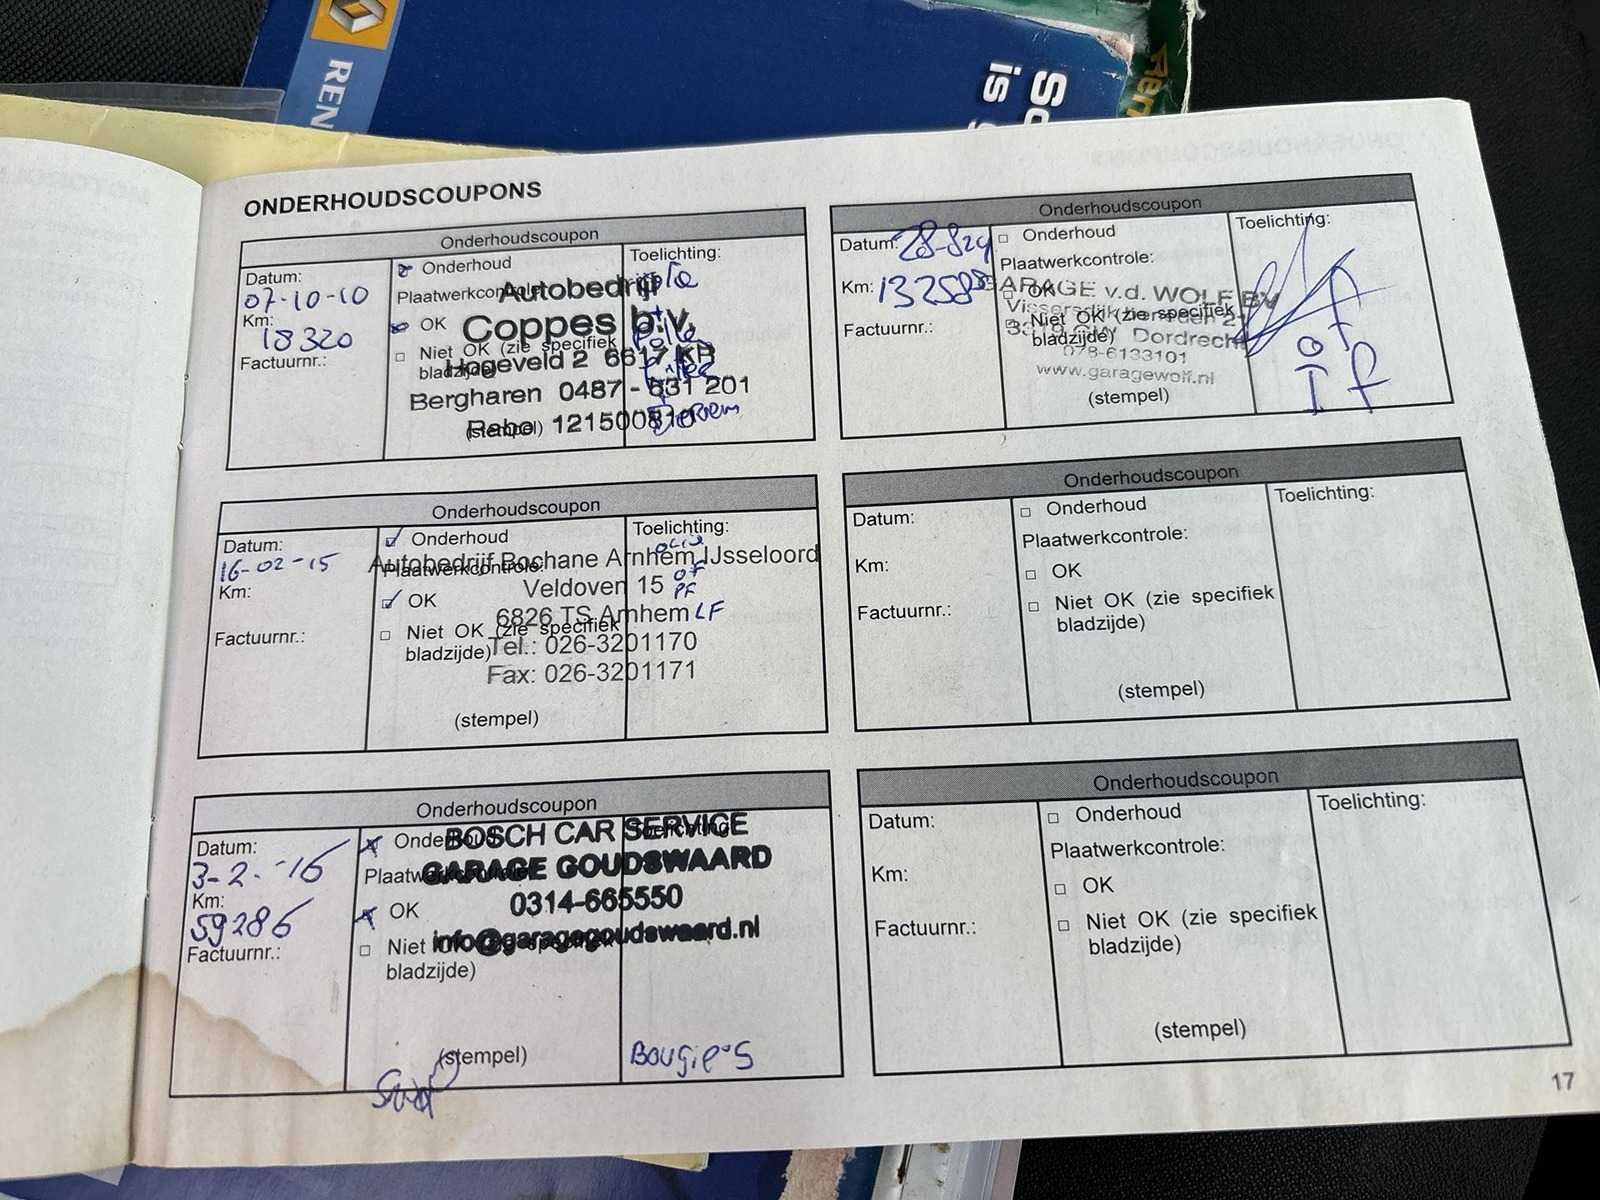 RENAULT
is
ONDERHOUDSCOUPONS
Onderhoudscoupon
Datum:
07-10-10
Km:
18320
Factuurnr.:
Onderhoud
Plaatwerkcontrole:
OK
Niet OK (zie specifiek
bladzijde)
(stempel)
Toelichting:
olie
+
Autobedrijf
Coppes b.v.
Hogeveld 2 6617 KR
Bergharen 0487 - 531 201
Rabo 121500810
Onderhoudscoupon
Datum:
16-02-15
Km:
Factuurnr.:
Onderhoud
Plaatwerkcontrole:
OK
Niet OK (zie specifiek
bladzijde)
(stempel)
Toelichting:
olie
OF
PF
LF
Autobedrijf Bochane Arnhem IJsseloord
Veldoven 15
6826 TS Arnhem
Tel.: 026-3201170
Fax: 026-3201171
Onderhoudscoupon
Datum:
3-2-'16
Km:
59286
Factuurnr.:
Onderhoud
Plaatwerkcontrole:
OK
Niet OK (zie specifiek
bladzijde)
(stempel)
Toelichting:
Bougie's
BOSCH CAR SERVICE
GARAGE GOUDSWAARD
0314-665550
info@garagegoudswaard.nl
Onderhoudscoupon
Datum:
28-824
Km:
Factuurnr.:
Onderhoud
Plaatwerkcontrole:
OK
Niet OK (zie specifiek
bladzijde)
(stempel)
Toelichting:
GARAGE v.d. WOLF BV
Dordrecht
078-6133101
www.garagewolf.nl
Onderhoudscoupon
Datum:
Km:
Factuurnr.:
Onderhoud
Plaatwerkcontrole:
OK
Niet OK (zie specifiek
bladzijde)
(stempel)
Toelichting:
Onderhoudscoupon
Datum:
Km:
Factuurnr.:
Onderhoud
Plaatwerkcontrole:
OK
Niet OK (zie specifiek
bladzijde)
(stempel)
Toelichting:
17